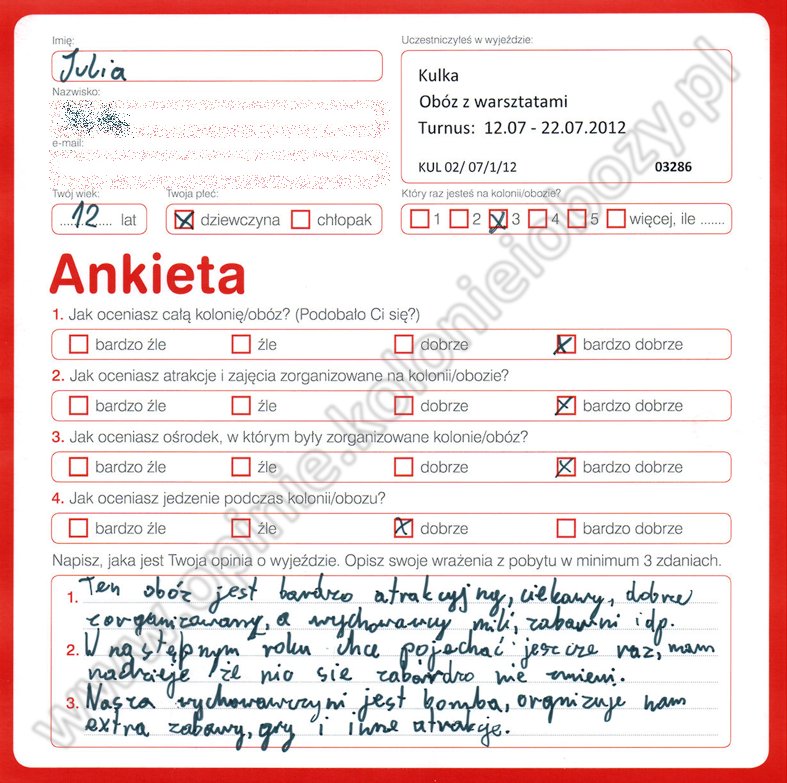 Imię:
Julia
Nazwisko:
e-mail:
Twój wiek:
12 lat
Twoja płeć:
dziewczyna chłopak
Uczestniczyłeś w wyjeździe:
Kulka
Obóz z warsztatami
Turnus: 12.07 - 22.07.2012
KUL 02/ 07/1/12 03286
Który raz jesteś na kolonii/obozie?
1 2 3 4 5 więcej, ile .......
Ankieta
1. Jak oceniasz całą kolonię/obóz? (Podobało Ci się?)
bardzo źle źle dobrze bardzo dobrze
2. Jak oceniasz atrakcje i zajęcia zorganizowane na kolonii/obozie?
bardzo źle źle dobrze bardzo dobrze
3. Jak oceniasz ośrodek, w którym były zorganizowane kolonie/obóz?
bardzo źle źle dobrze bardzo dobrze
4. Jak oceniasz jedzenie podczas kolonii/obozu?
bardzo źle źle dobrze bardzo dobrze
Napisz, jaka jest Twoja opinia o wyjeździe. Opisz swoje wrażenia z pobytu w minimum 3 zdaniach.
1. Ten obóz jest bardzo atrakcyjny, ciekawy, dobrze
zorganizowany, a wychowawcy mili, zabawni idp.
2. W następnym roku chce pojechać jeszcze raz, mam
nadzieje że nic sie zabardzo nie zmieni.
3. Nasza wychowawczyni jest bomba, orgnizuje nam
extra zabawy, gry i inne atrakcje.
www.opinie.kolonieiobozy.pl